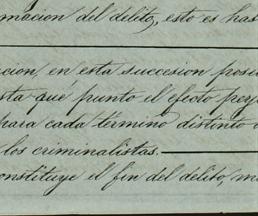 macion del delito, esto es has
cion, en esta succesion posi
sta que punto el efecto perj
para cada término distinto
los criminalistas.
onstituye el fin del delito, m